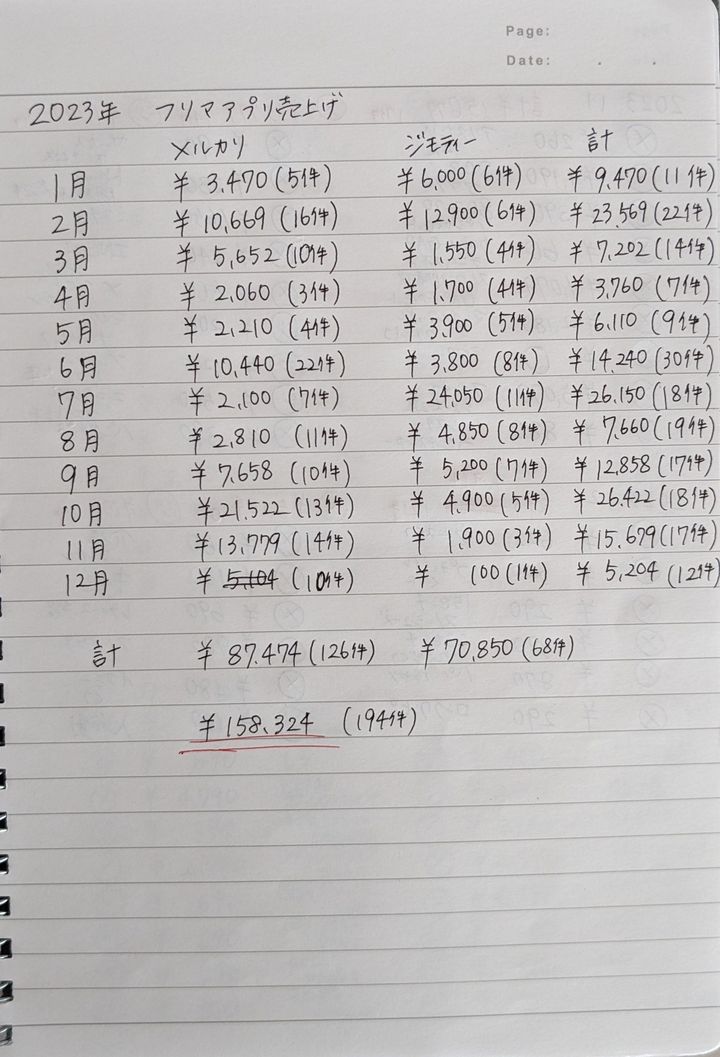 Page:
Date: . .
2023年 フリマアプリ売上げ
メルカリ ジモティー 計
1月 ¥3,470(5件) ¥6,000(6件) ¥9,470(11件)
2月 ¥10,669(16件) ¥12,900(6件) ¥23,569(22件)
3月 ¥5,652(10件) ¥1,550(4件) ¥7,202(14件)
4月 ¥2,060(3件) ¥1,700(4件) ¥3,760(7件)
5月 ¥2,210(4件) ¥3,900(5件) ¥6,110(9件)
6月 ¥10,440(22件) ¥3,800(8件) ¥14,240(30件)
7月 ¥2,100(7件) ¥24,050(11件) ¥26,150(18件)
8月 ¥2,810(11件) ¥4,850(8件) ¥7,660(19件)
9月 ¥7,658(10件) ¥5,200(7件) ¥12,858(17件)
10月 ¥21,522(13件) ¥4,900(5件) ¥26,422(18件)
11月 ¥13,779(14件) ¥1,900(3件) ¥15,679(17件)
12月 ¥5,104(10件) ¥100(1件) ¥5,204(12件)
計 ¥87,474(126件) ¥70,850(68件)
¥158,324(194件)